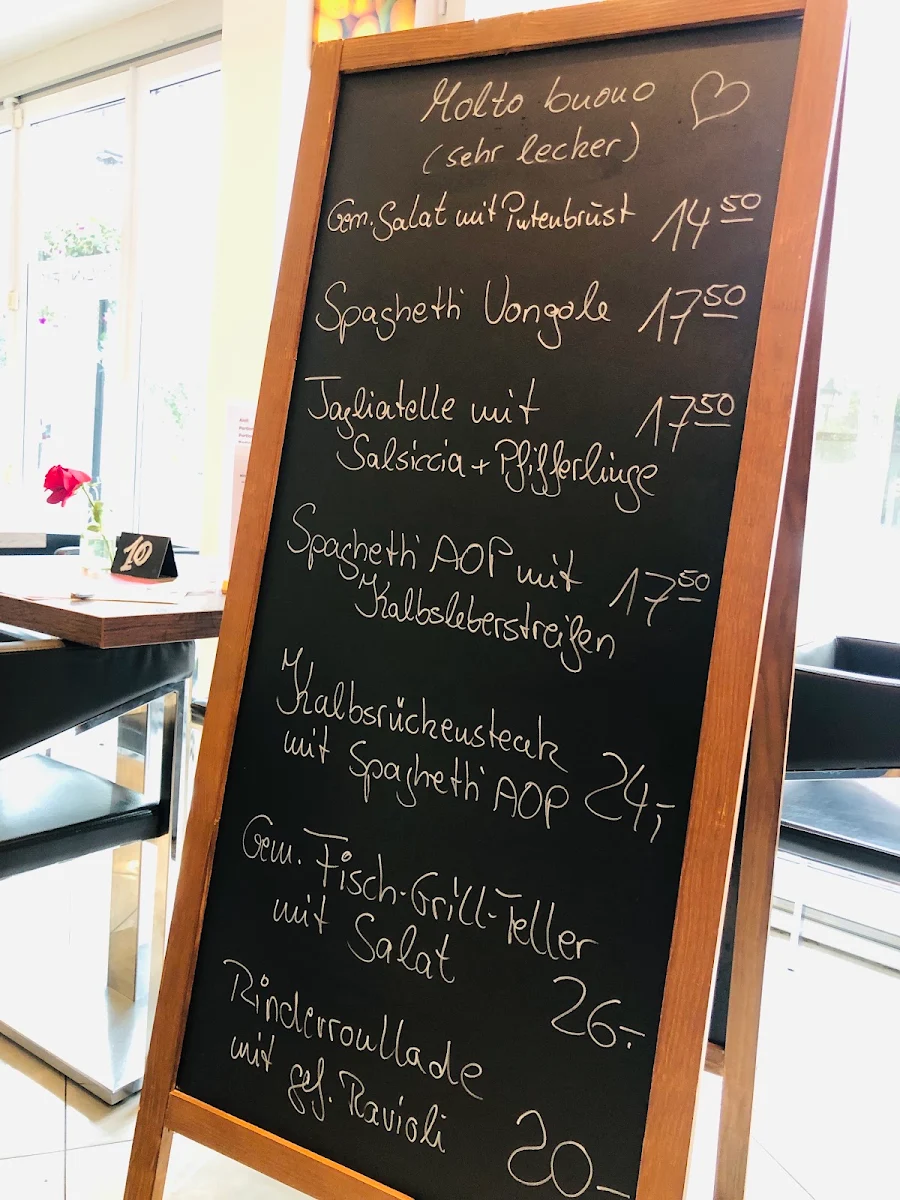 Molto buono ♡
(sehr lecker)
Gem. Salat mit Putenbrust 14 50
Spaghetti Vongole 17 50
Tagliatelle mit 17 50
Salsiccia + Pfifferlinge
Spaghetti AOP mit 17 50
Kalbsleberstreifen
Kalbsrückensteak
mit Spaghetti AOP 24,-
Gem. Fisch-Grill-Teller
mit Salat
26.-
Rinderroullade
mit gef. Ravioli
20-
10